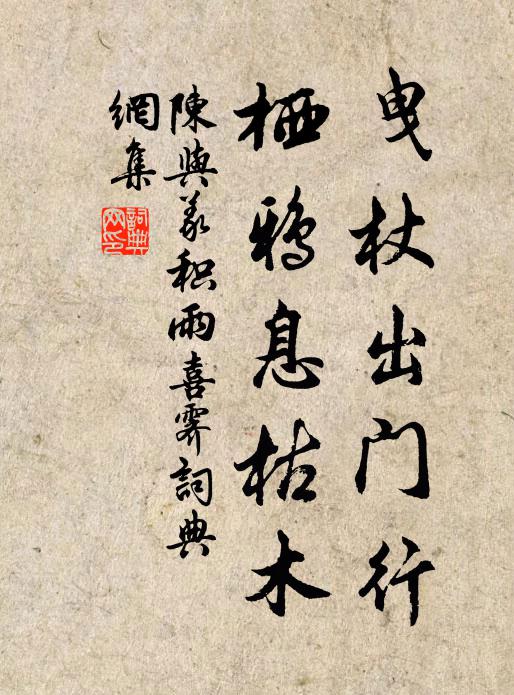 曳杖出门行
栖鴉息枯木
陳與義积雨喜霽詞典
網集
詞典
网印